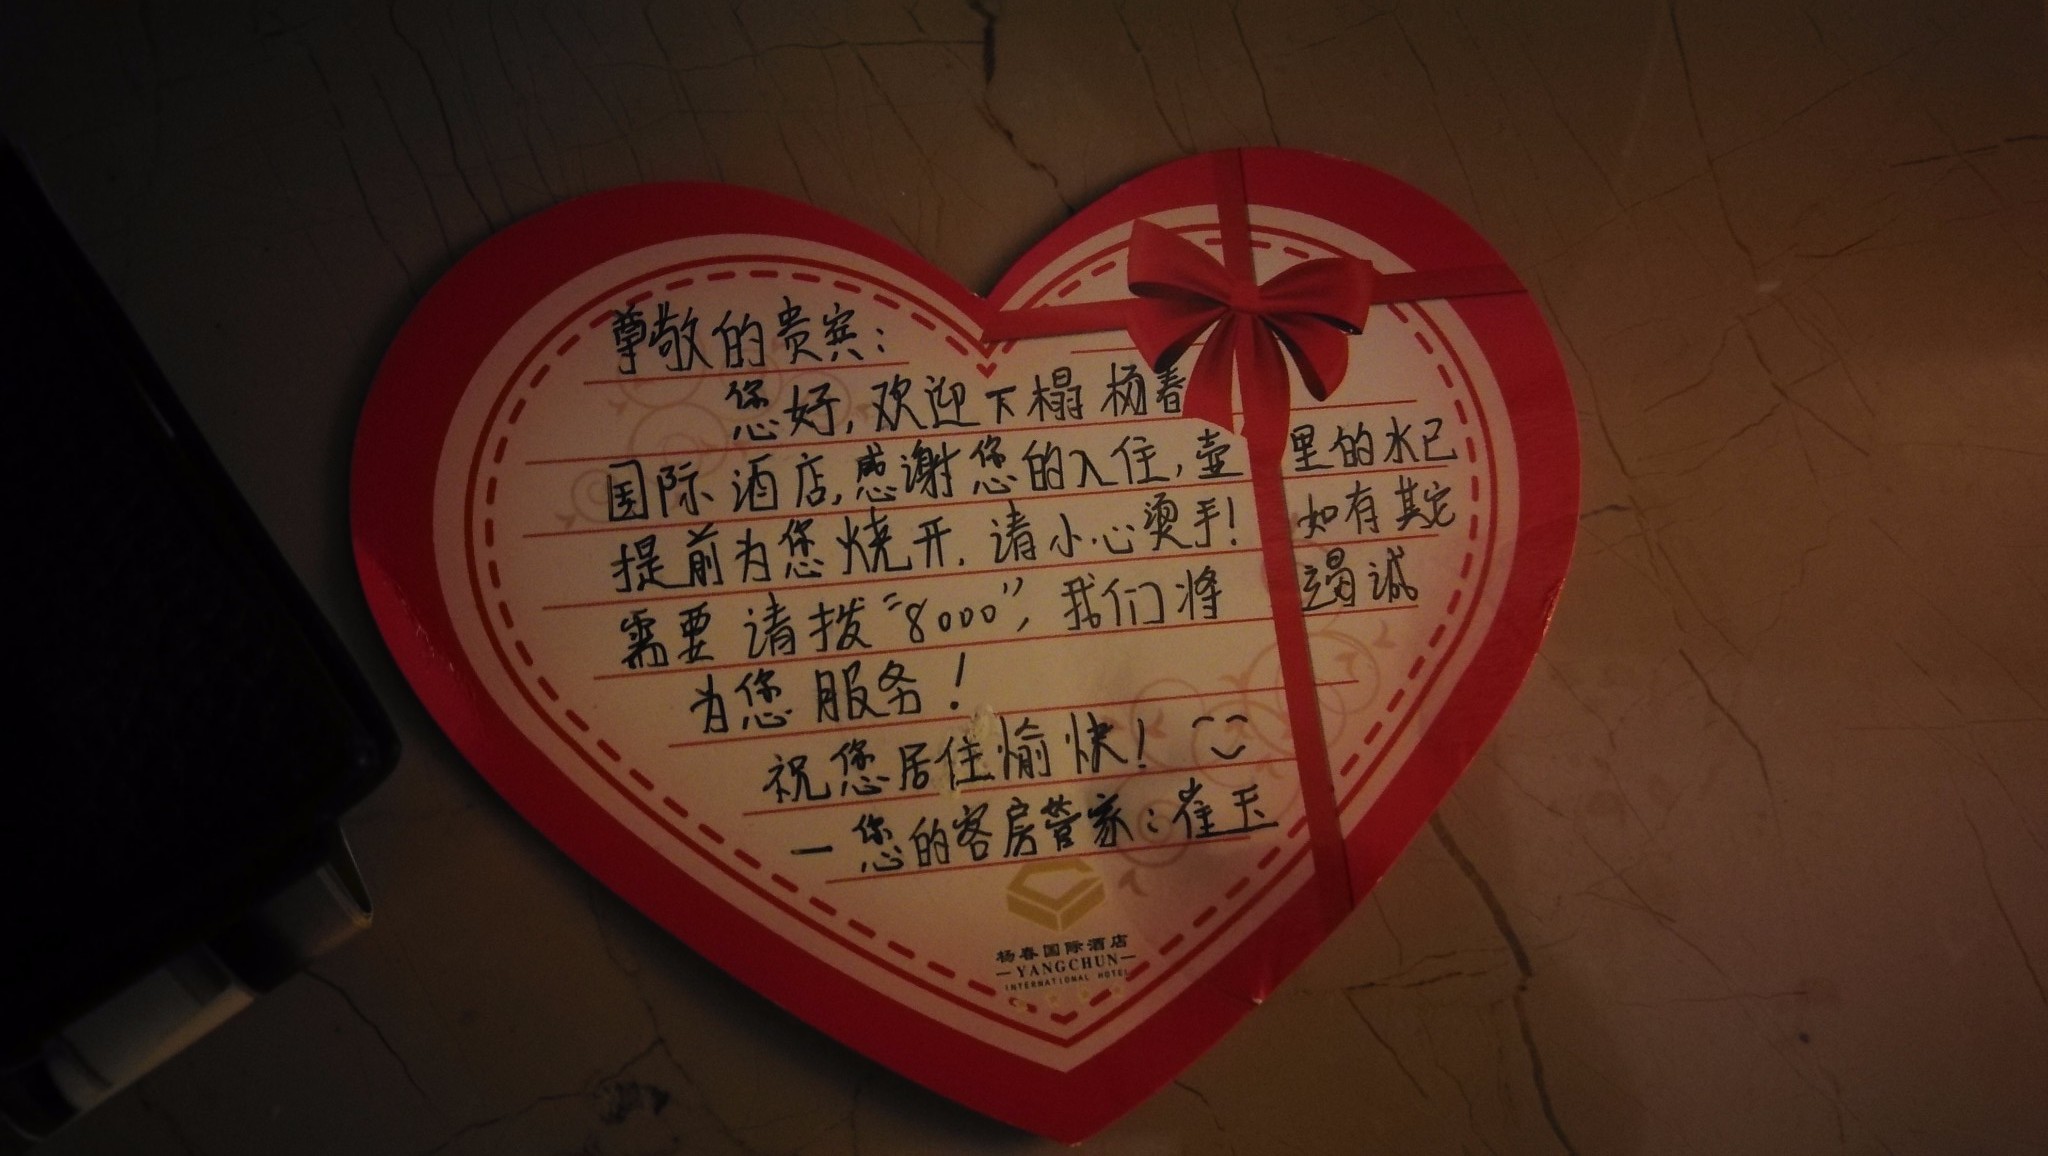 尊敬的贵宾:
您好,欢迎下榻杨春
国际酒店,感谢您的入住,壶里的水已
提前为您烧开,请小心烫手!如有其它
需要请拨“8000”,我们将竭诚
为您服务!
祝您居住愉快!
—您的客房管家:崔玉
杨春国际酒店
YANGCHUN
INTERNATIONAL HOTEL